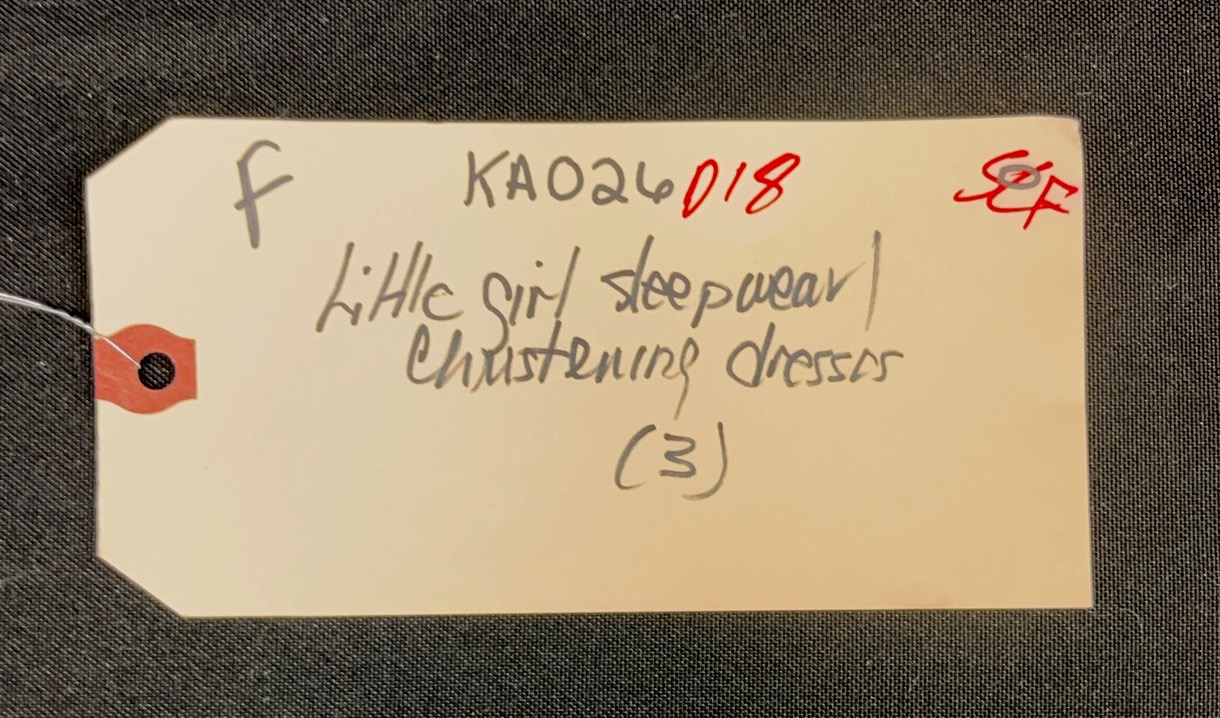 F KA026 D18 SCF
Little girl sleepwear/
Christening dresses
(3)